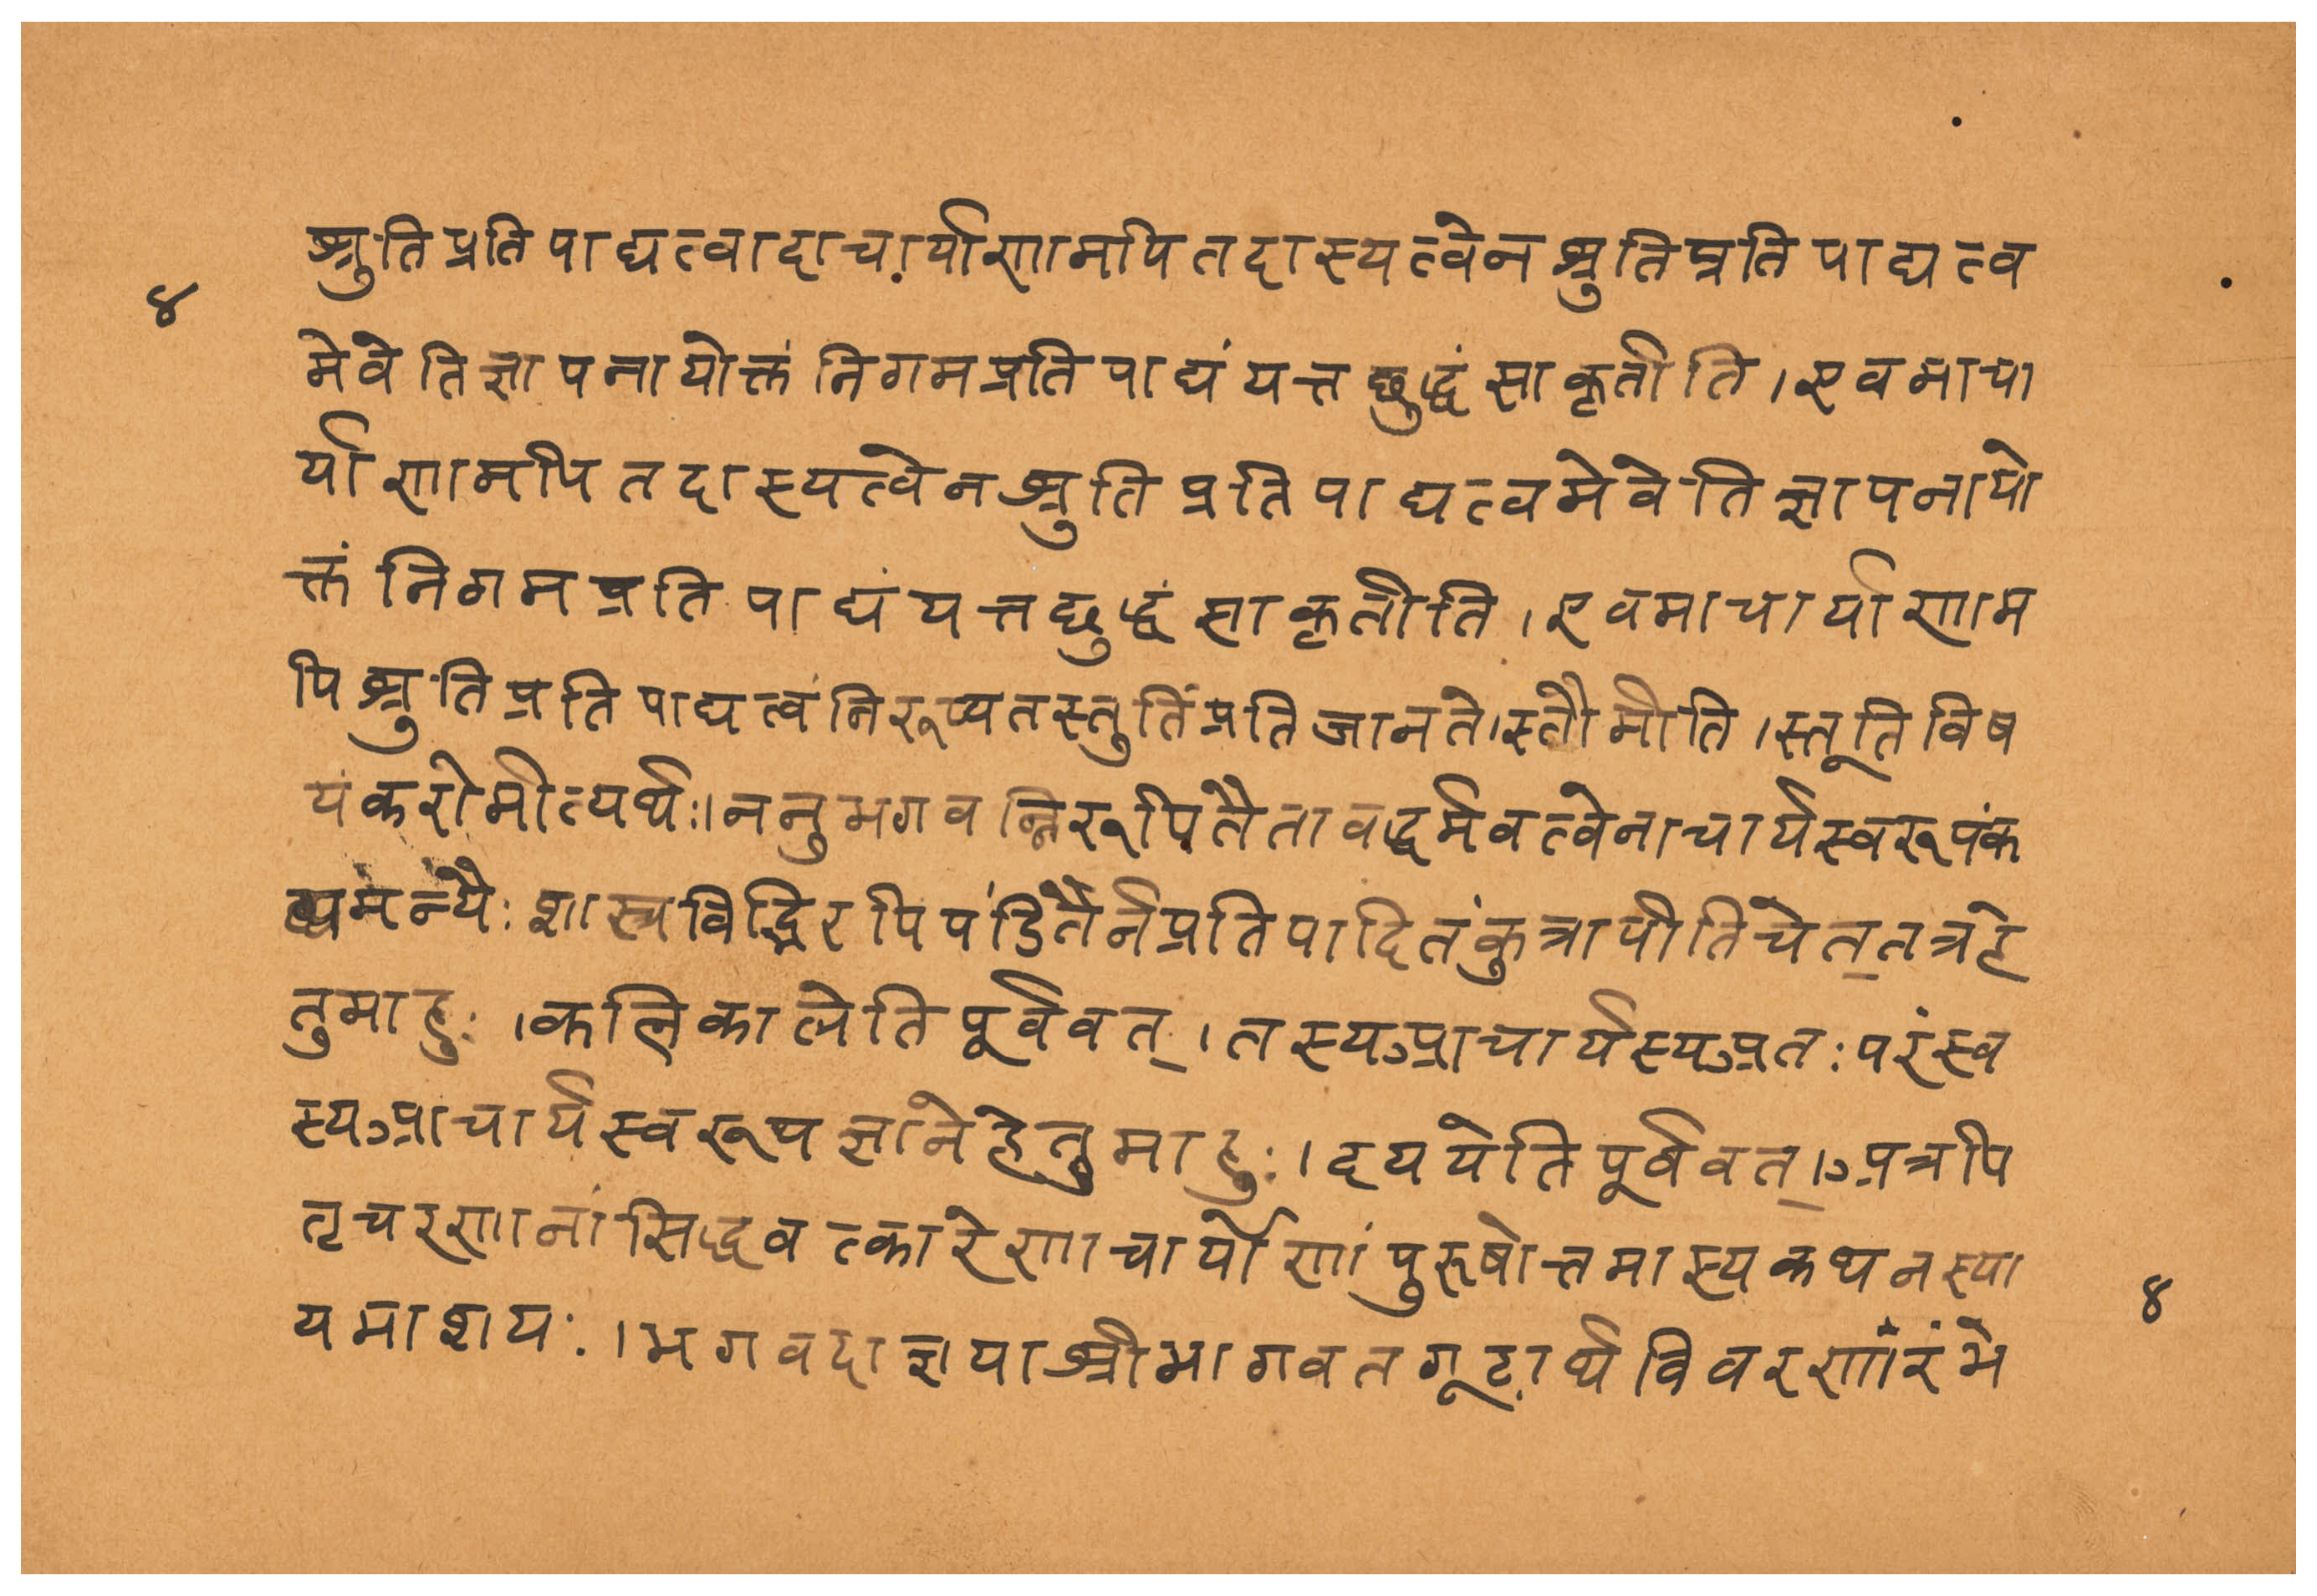 श्रुतिप्रतिपाद्यत्वादाचार्याणामपितदास्यत्वेनश्रुतिप्रतिपाद्यत्व
४
मेवेतिज्ञापनायोक्तंनिगमप्रतिपाद्यंयत्तछुद्धंसाकृतीति।एवमाचा
र्याणामपितदास्यत्वेनश्रुतिप्रतिपाद्यत्वमेवेतिज्ञापनायो
क्तंनिगमप्रतिपाद्यंयत्तछुद्धंसाकृतीति।एवमाचार्याणाम
पिश्रुतिप्रतिपाद्यत्वंनिरूप्यतस्तुतिंप्रतिजानते।स्तौमीति।स्तूतिविष
यंकरोमीत्यर्थः।ननुभगवन्निरूपितैतावद्धर्मवत्वेनाचार्यस्वरूपंक
थमन्यैःशास्त्रविद्भिरपिपंडितैर्नप्रतिपादितंकुत्रापीतिचेत्तत्रहे
तुमाहुः।कलिकालेतिपूर्ववत्।तस्यआचार्यस्यअतःपरंस्व
स्यआचार्यस्वरूपज्ञानेहेतुमाहुः।दययेतिपूर्ववत्।अत्रपि
तृचरणानांसिद्धवत्कारेणाचार्याणांपुरूषोत्तमास्यकथनस्या
४
यमाशयः।भगवदाज्ञयाश्रीभागवतगूढार्थविवरणांरंभे